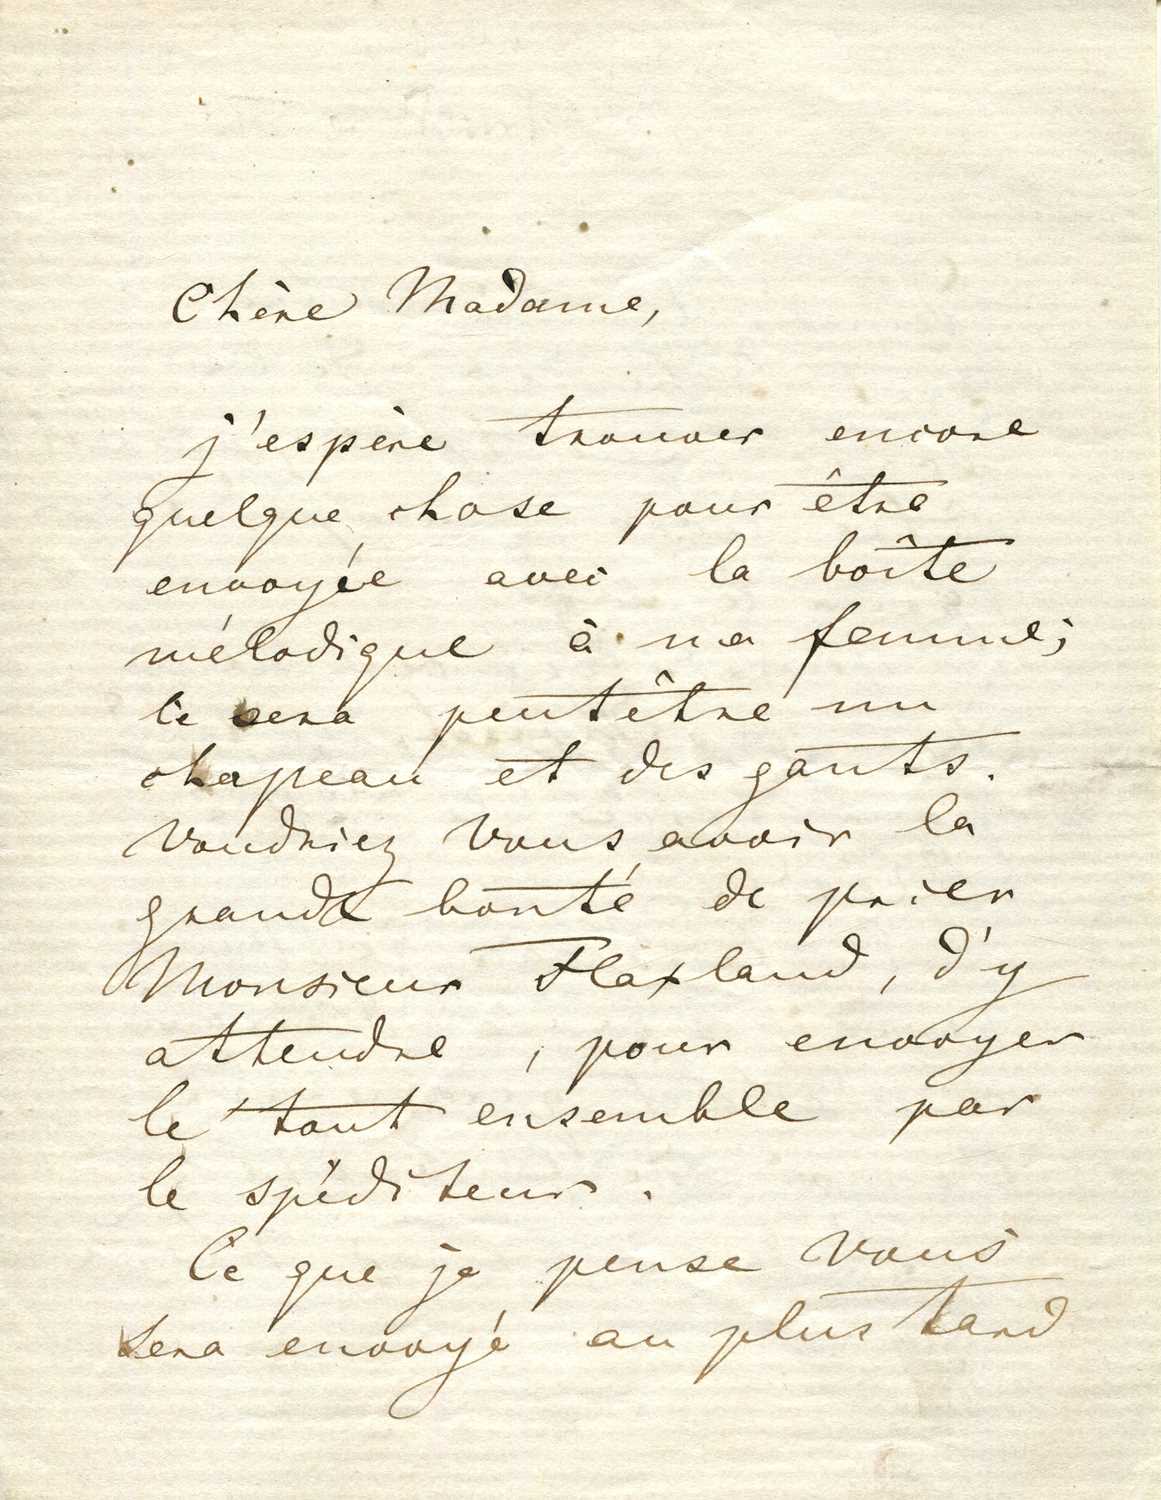 Chère Madame,
j'espère trouver encore
quelque chose pour être
envoyée avec la boîte
mélodique à ma femme;
ce sera peutêtre un
chapeau et des gants.
Voudriez vous avoir la
grande bonté de prier
Monsieur Flaxland, d'y
attendre, pour envoyer
le tout ensemble par
le spéditeur.
Ce que je pense vous
sera envoyé au plus tard